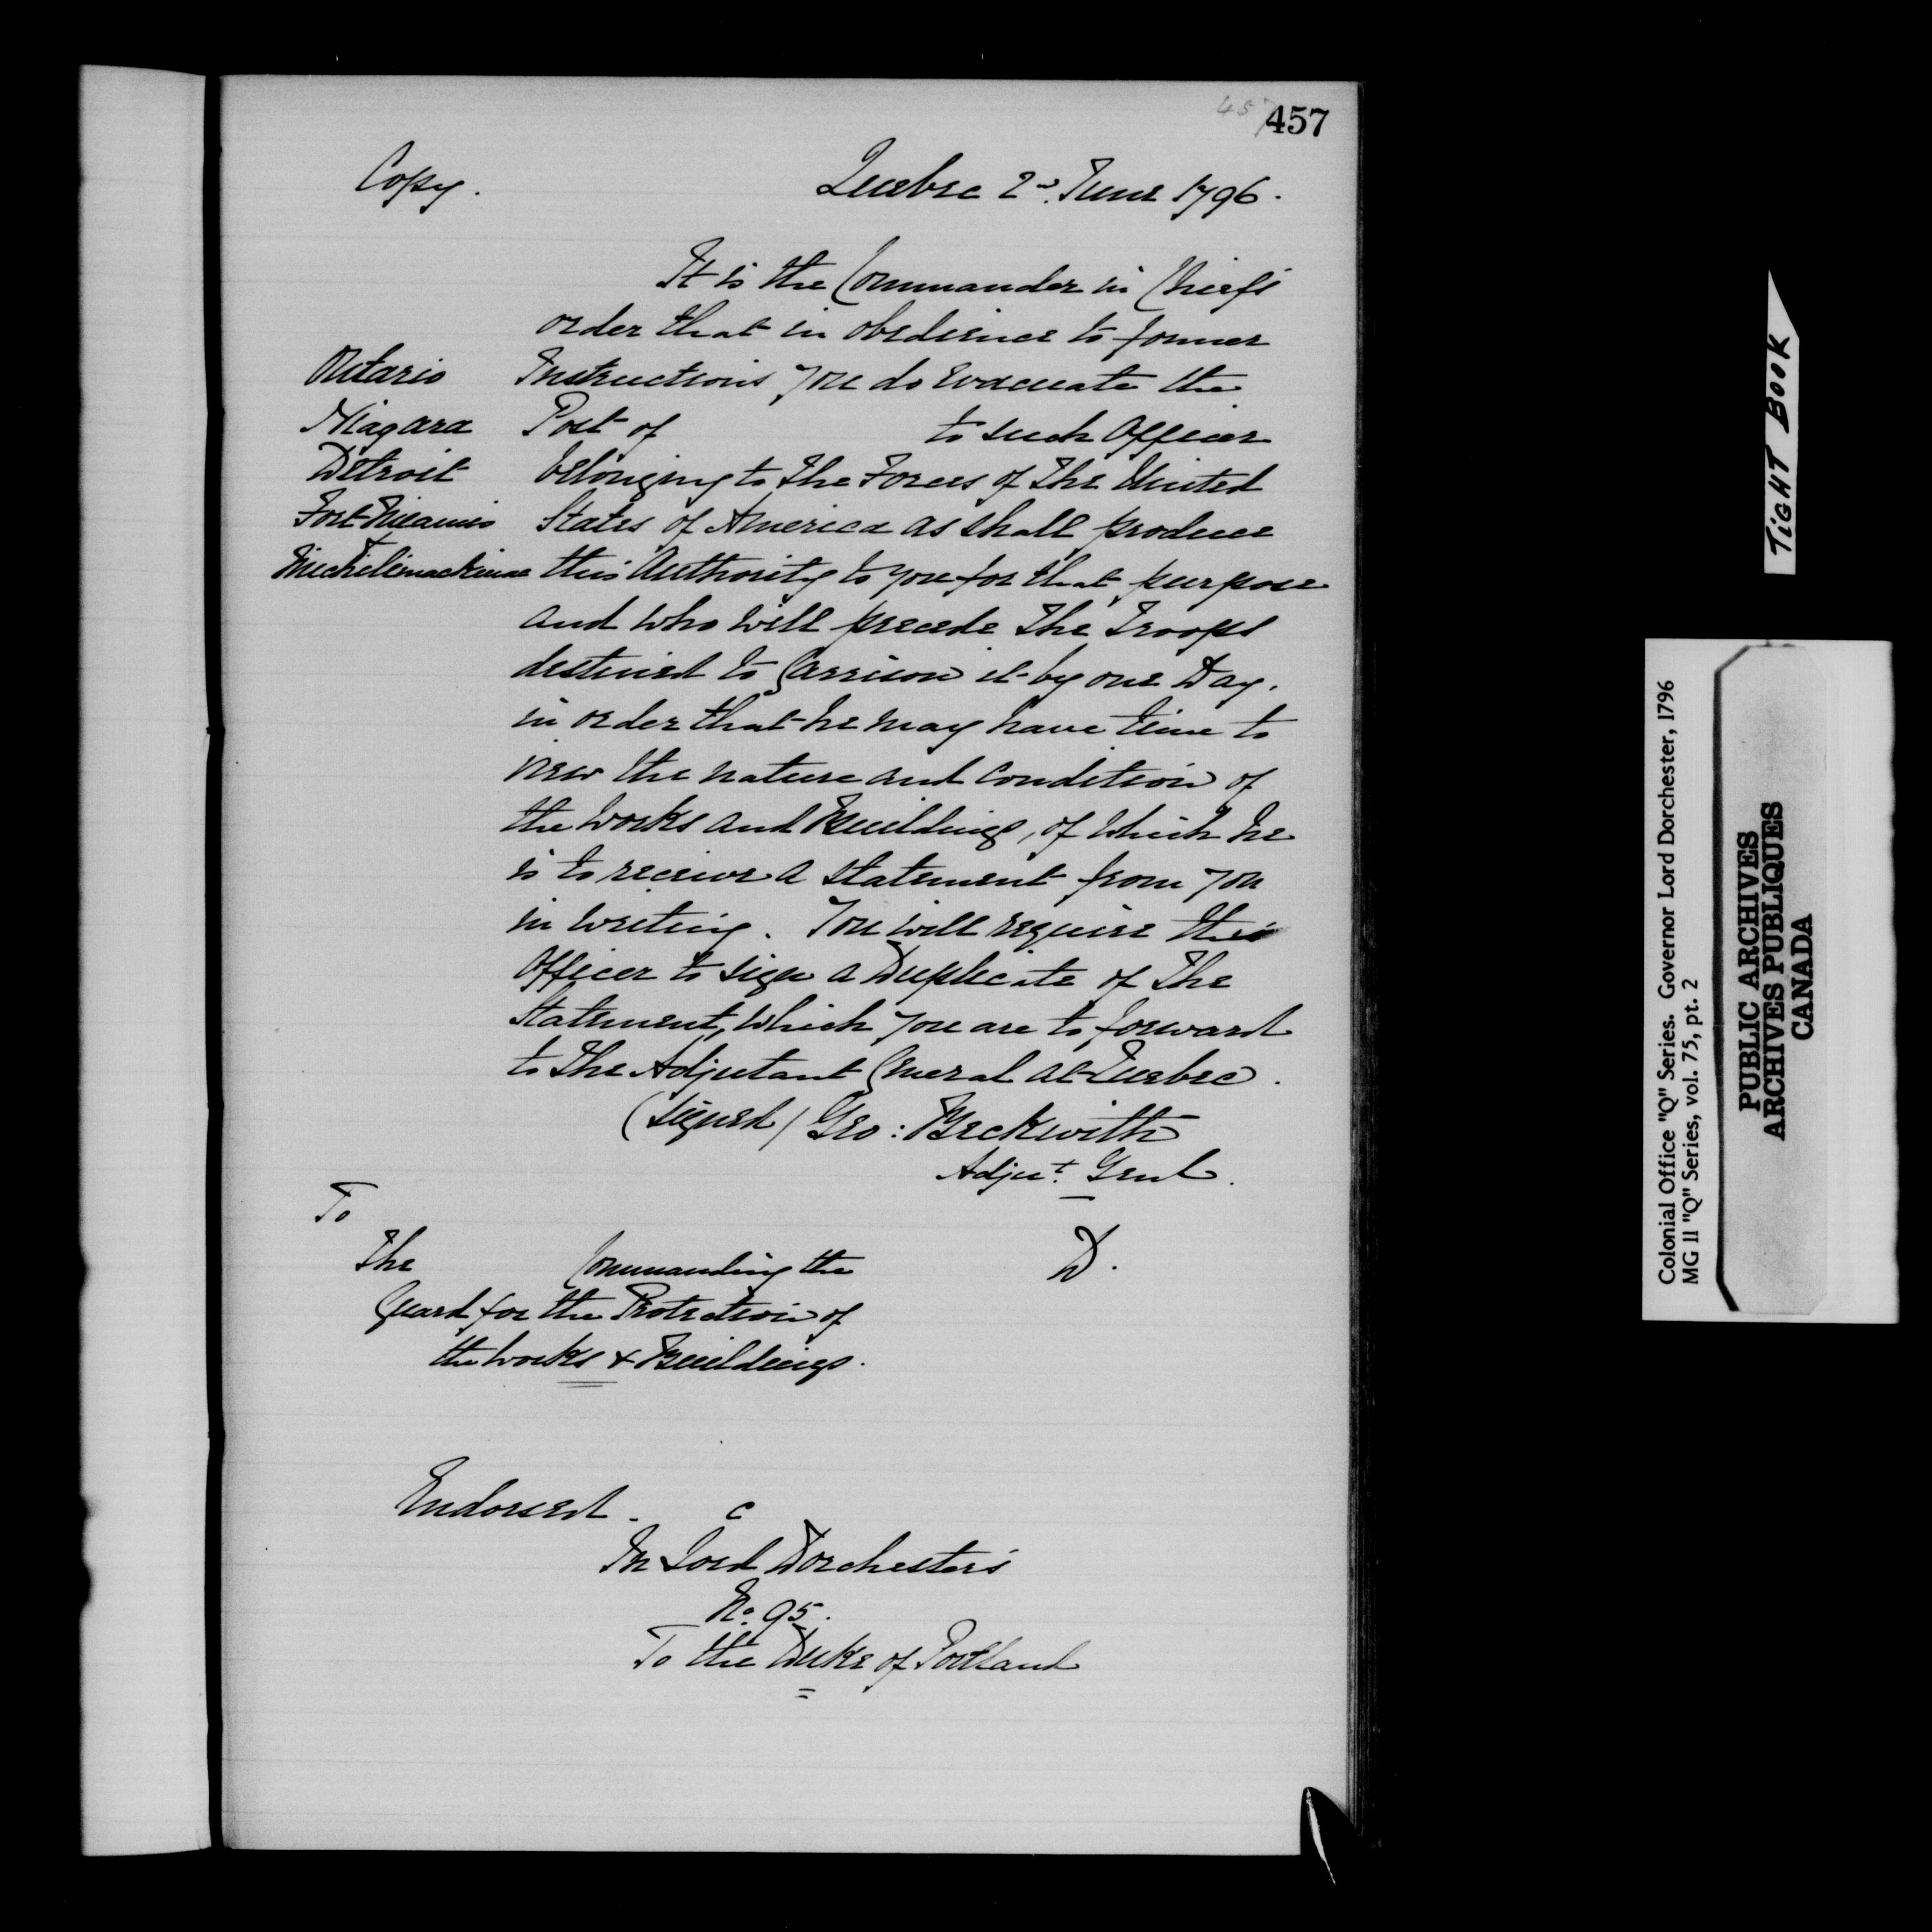 457
457
Copy. Quebec 2d. June 1796.
It is the Commander in Chiefs
order that in obedience to former
Ontario Instructions you do evacuate the
Niagara Post of to such Officer
Detroit belonging to the Forces of the United
Fort Miamis States of America as shall produce
Michilimackinac this Authority to you for that purpose
and who will precede the Troops
destined to Garrison it by one Day.
in order that he may have time to
view the nature and condition of
the works and Buildings, of which he
is to receive a statement from you
in writing. You will require this
Officer to sign a Duplicate of the
Statement, which you are to forward
to the Adjutant General at Quebec.
(signed) Geo: Beckwith
Adjut. Genl.
To
The Commanding the D.
Guard for the Protection of
the works & Buildings.
Endorsed. C
In Lord Dorchester's
No. 95.
To the Duke of Portland
TIGHT BOOK
Colonial Office "Q" Series. Governor Lord Dorchester, 1796
MG 11 "Q" Series, vol. 75, pt. 2
PUBLIC ARCHIVES
ARCHIVES PUBLIQUES
CANADA